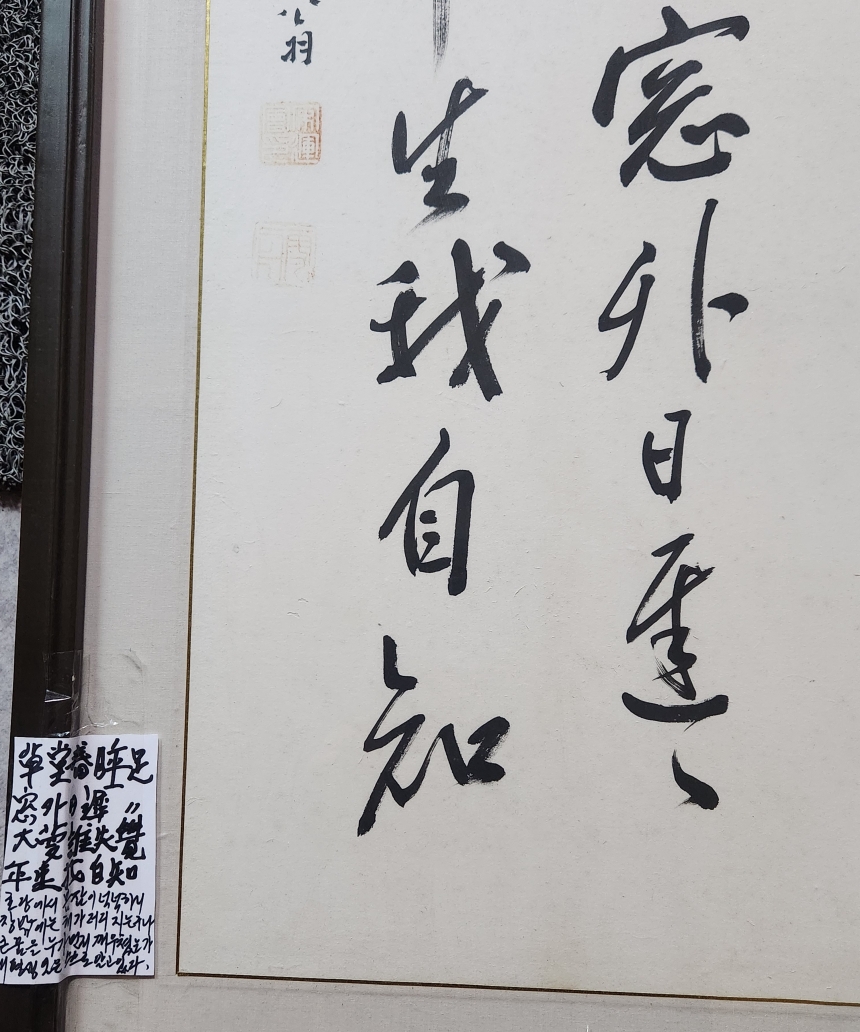 窓外日遲々
生我自知
翁
草堂春睡足
窓外日遲〃
大夢誰先覺
年生我自知
초당에서 봄잠이 넉넉하니
창밖에는 해가 더디 지는구나
큰 꿈을 누가 먼저 깨우쳤는가
내 평생 나 스스로 알고 있다.